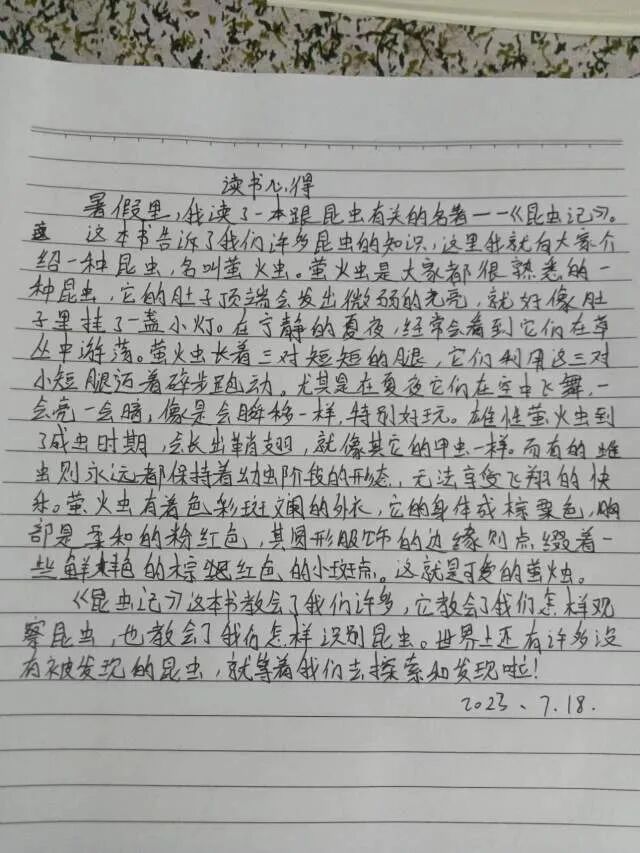 读书心得
暑假里，我读了一本跟昆虫有关的名著——《昆虫记》。
这本书告诉了我们许多昆虫的知识，这里我就向大家介
绍一种昆虫，名叫萤火虫。萤火虫是大家都很熟悉的一
种昆虫，它的肚子顶端会发出微弱的光亮，就好像肚
子里挂了一盏小灯。在宁静的夏夜，经常会看到它们在草
丛中游荡。萤火虫长着三对短短的腿，它们利用这三对
小短腿迈着碎步跑动。尤其是在夏夜它们在空中飞舞，一
会亮一会暗，像是会瞬移一样，特别好玩。雄性萤火虫到
了成虫时期，会长出鞘翅，就像其它的甲虫一样。而有的雌
虫则永远都保持着幼虫阶段的形态，无法享受飞翔的快
乐。萤火虫有着色彩斑斓的外衣，它的身体或棕栗色，胸
部是柔和的粉红色，其圆形服饰的边缘则点缀着一
些鲜艳的棕红色的小斑点。这就是可爱的萤火虫。
《昆虫记》这本书教会了我们许多，它教会了我们怎样观
察昆虫，也教会了我们怎样识别昆虫。世界上还有许多没
有被发现的昆虫，就等着我们去探索和发现啦！
2023、7.18.